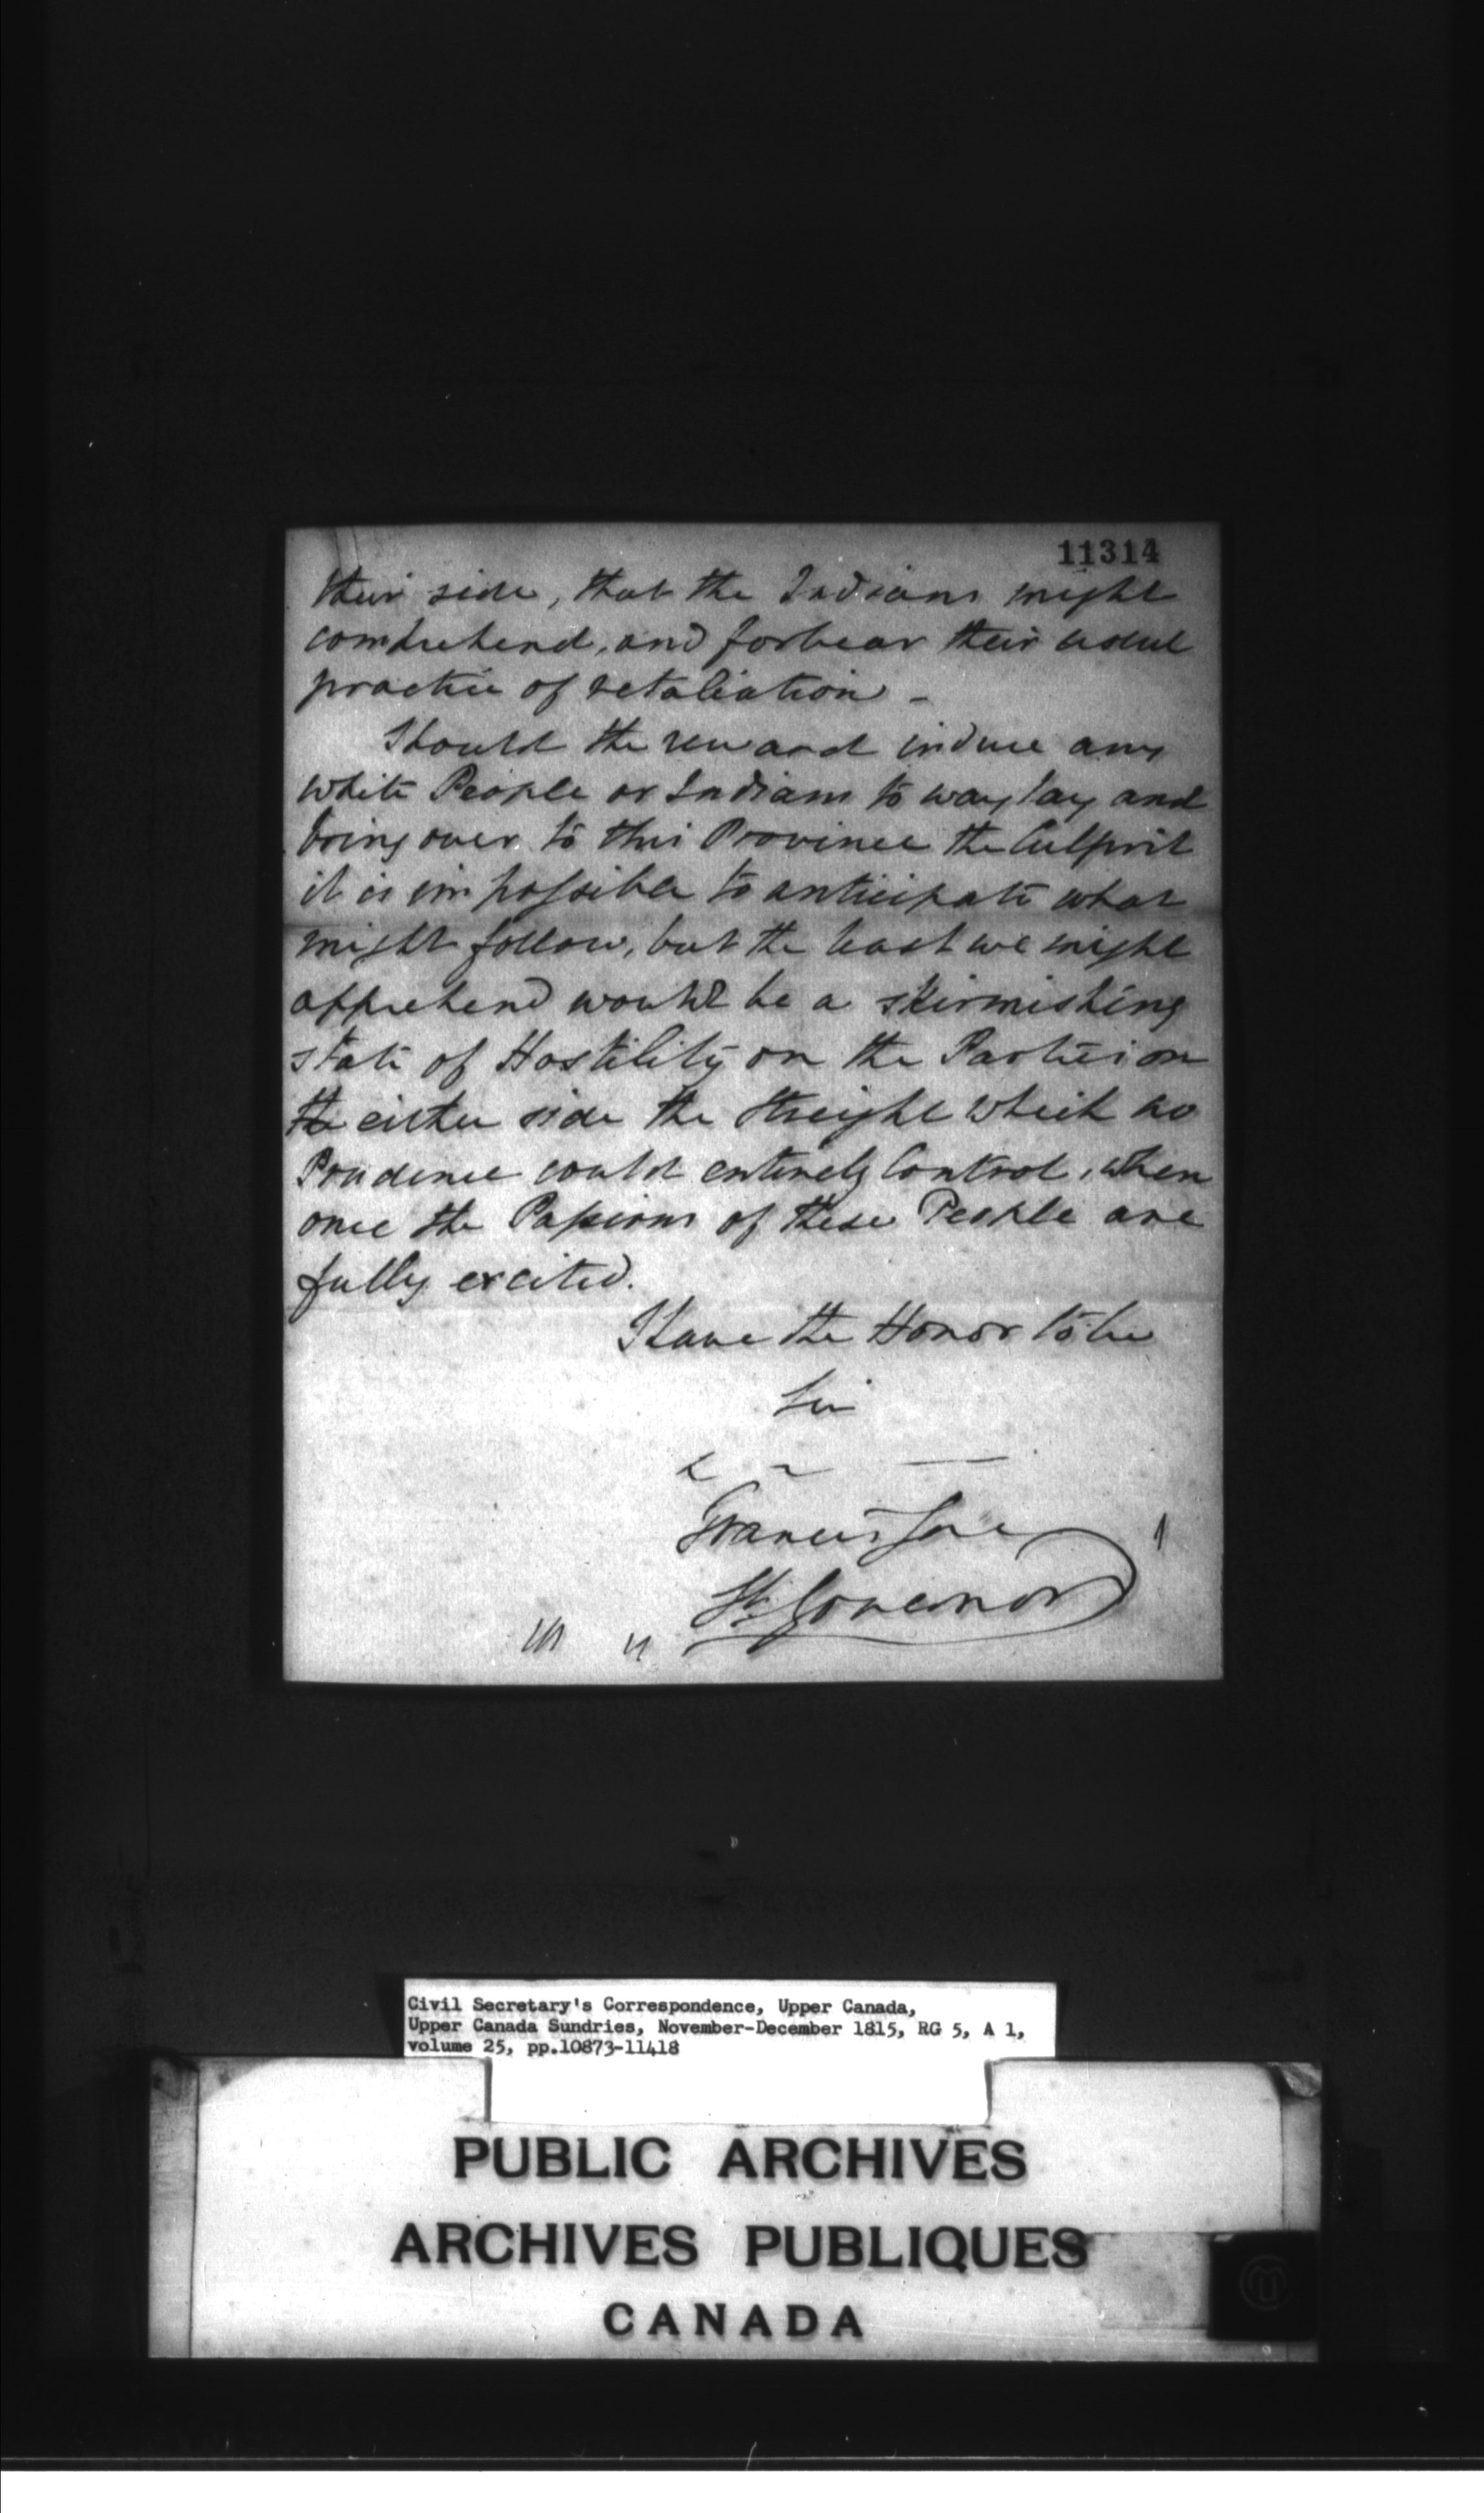 11314
their side, that the Indians might
comprehend, and forbear their usual
practice of retaliation -
Should the reward induce any
white People or Indians to way lay and
bring over to this Province the Culprit
it is impossible to anticipate what
might follow, but the least we might
apprehend would be a skirmishing
state of Hostility on the Parties on
the either side the Streight which no
Prudence could entirely Control, when
once the Passions of these People are
fully excited.
I have the Honor to be
Sir
Francis Gore
Lt. Governor
Civil Secretary's Correspondence, Upper Canada,
Upper Canada Sundries, November-December 1815, RG 5, A 1,
volume 25, pp.10873-11418
PUBLIC ARCHIVES
ARCHIVES PUBLIQUES
CANADA